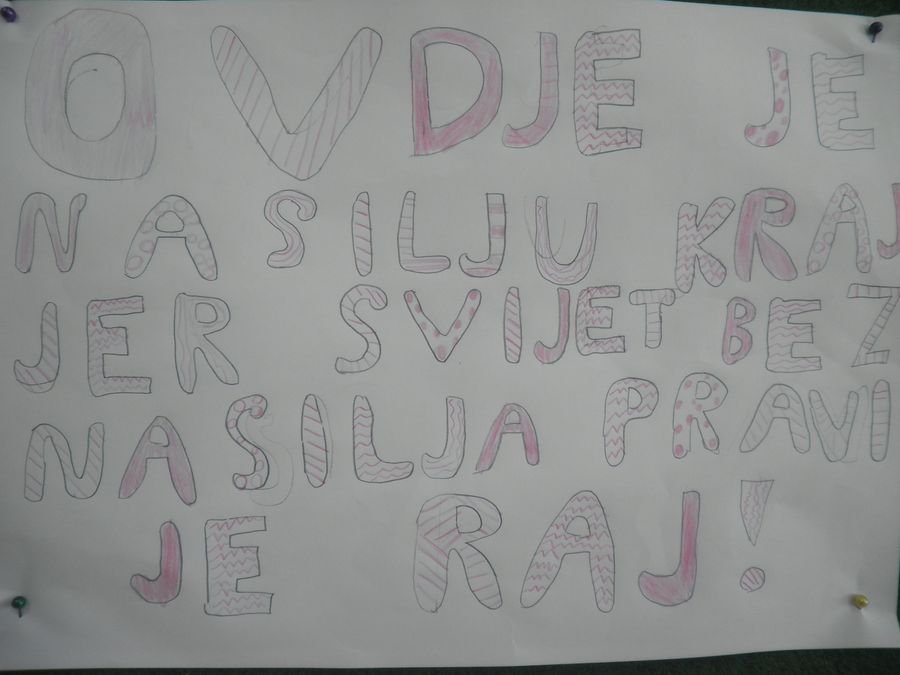 OVDJE JE
NASILJU KRAJ
JER SVIJET BEZ
NASILJA PRAVI
JE RAJ!